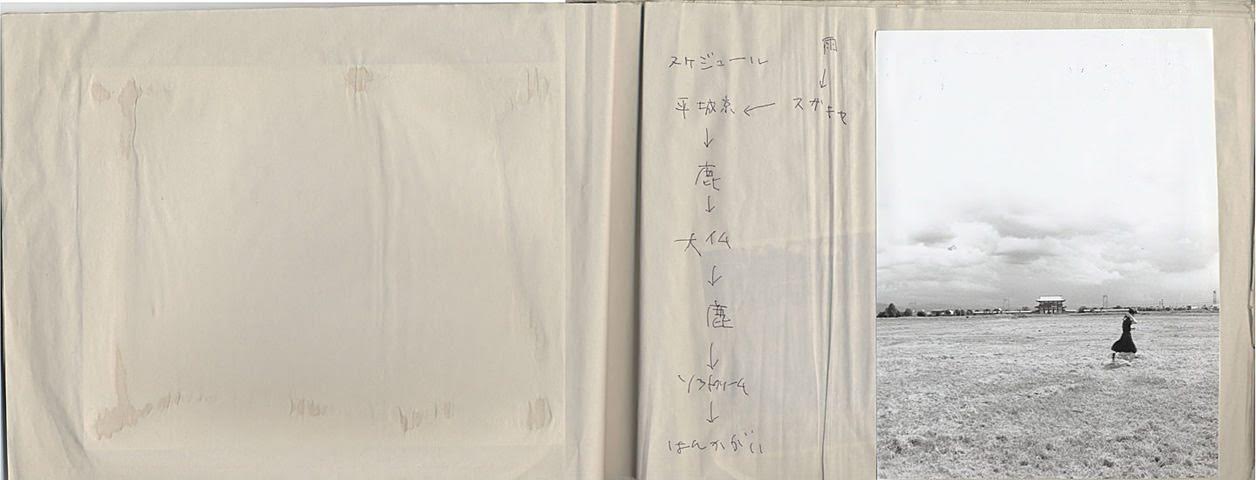 スケジュール
雨
↓
平城京 ← スガキヤ
↓
鹿
↓
大仏
↓
鹿
↓
ソフトクリーム
↓
はんかがい